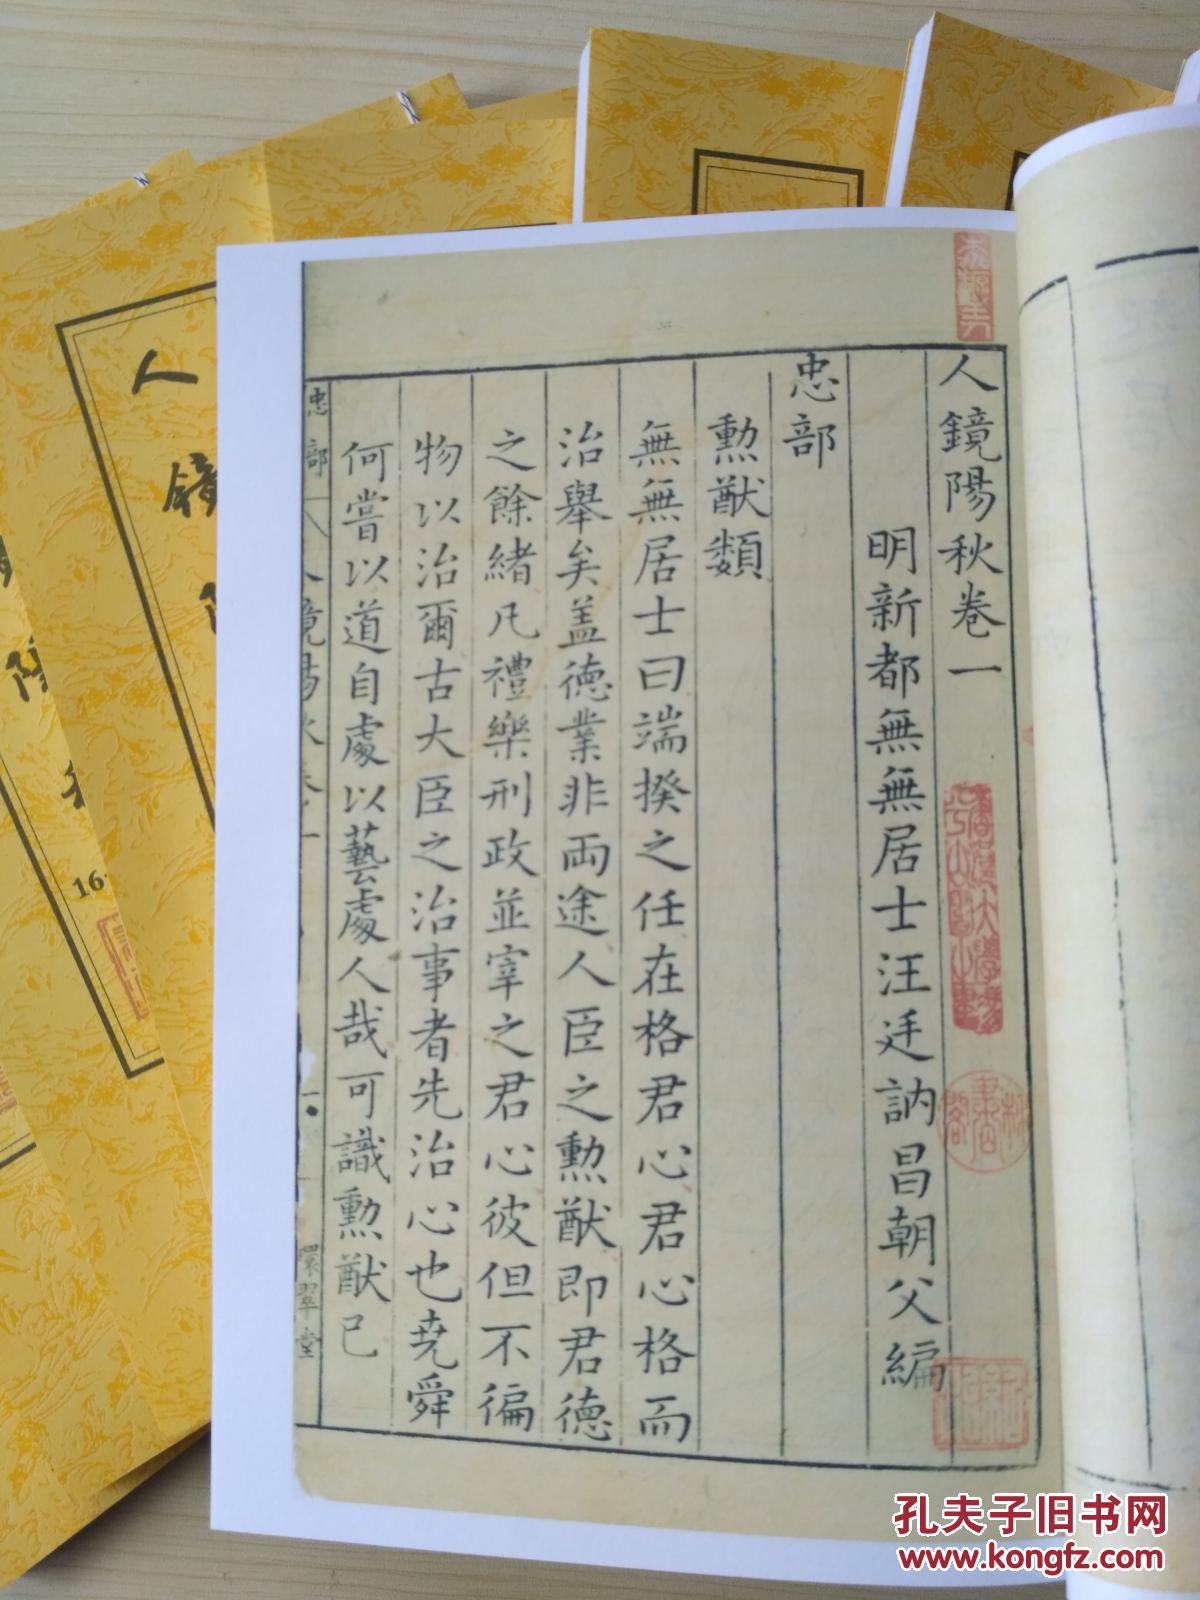 人鏡陽秋卷一
明新都無無居士汪廷訥昌朝父編
忠部
勲猷類
無無居士曰端揆之任在格君心君心格而
治舉矣盖德業非両途人臣之勲猷即君德
之餘緒凡禮樂刑政並宰之君心彼但不徧
物以治爾古大臣之治事者先治心也堯舜
何嘗以道自處以藝處人哉可識勲猷已
忠部
人鏡陽秋卷一
一
環翠堂
人
鏡
陽
16
孔夫子旧书网
www.kongfz.com